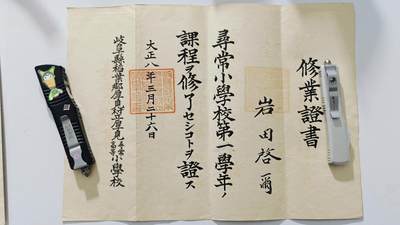 修業證書
岩田啓爾
尋常小學校第一學年ノ
課程ヲ修了セシコトヲ證ス
大正八年三月二十六日
岐阜縣稲葉郡厚見村立厚見尋常高等小學校